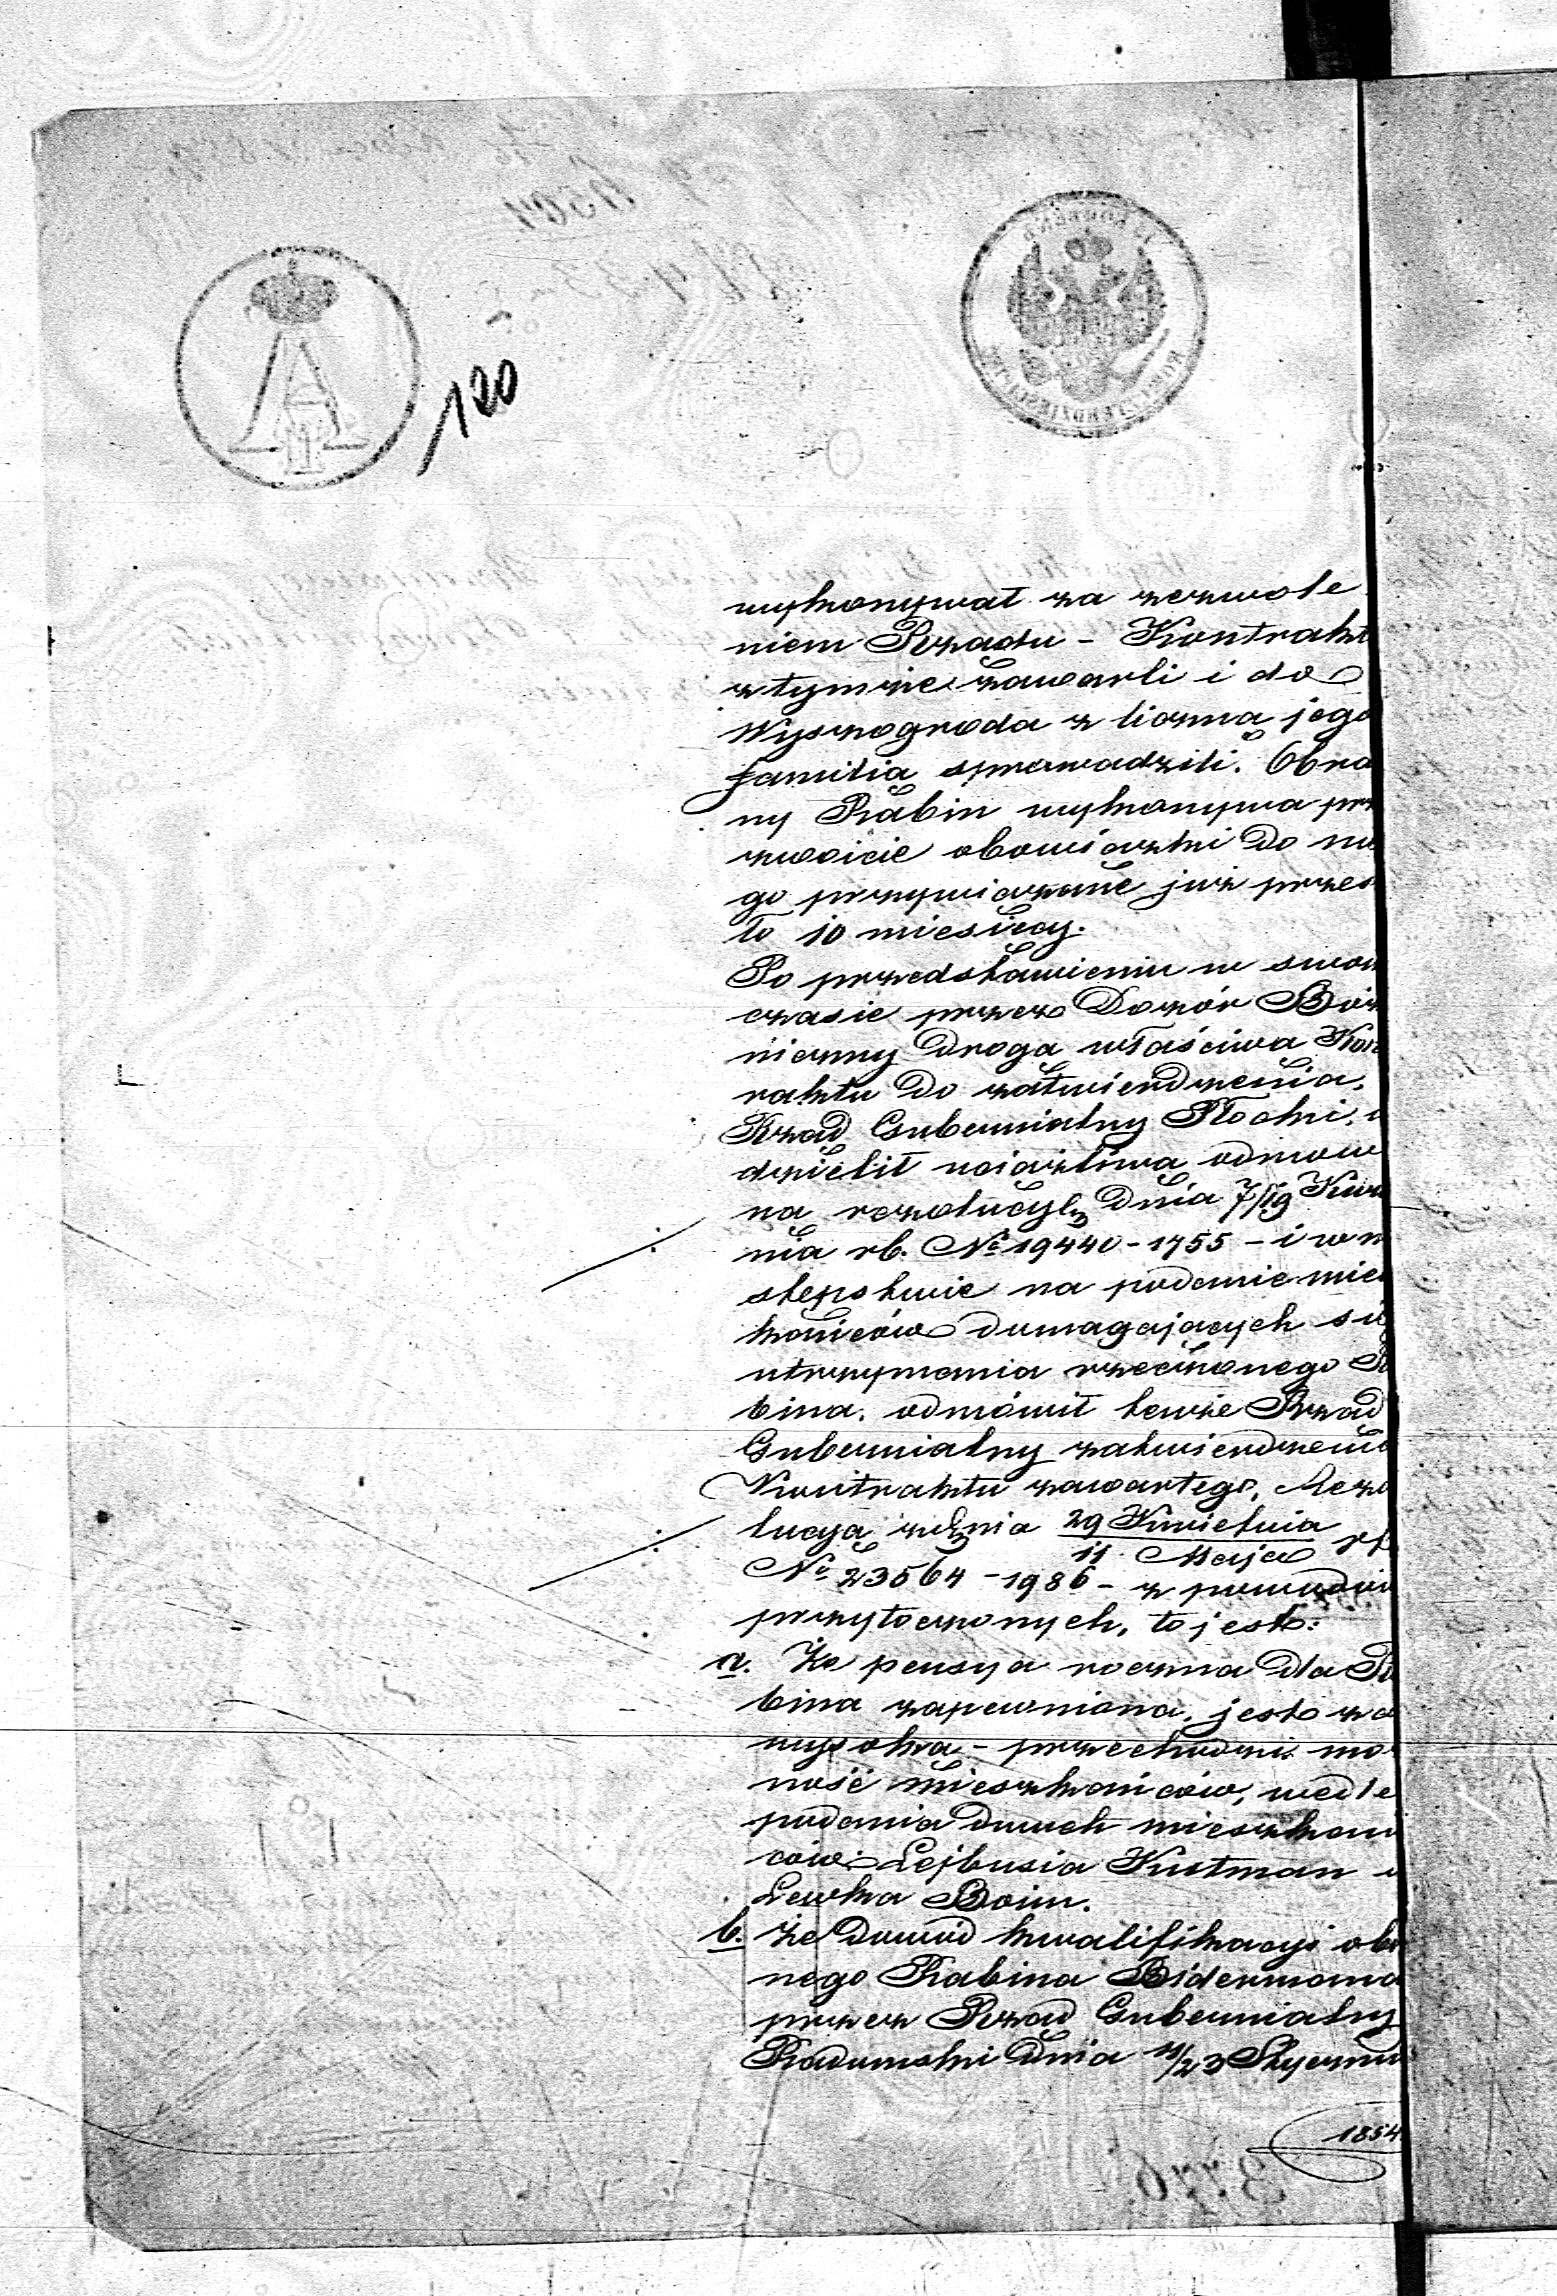 120
wykonywał za zezwole
niem Rządu - Kontrakt
z tymże zawarli i do
Wyszogroda z liczną jego
familią sprowadzili. Obra
ny Rabin wykonywa prz
zwoicie obowiązki do nie
go przywiązane już przesz
ło 10 miesięcy.
Po przedstawieniu w swoim
czasie przez Dozór Boż
niczny drogą właściwą Kon
raktu do zatwierdzenia,
Rząd Gubernialny Płocki, u
dzielił uciążliwą odmow
ną rezolucyę z dnia 7/19 Kwie
nia rb. No 19440 - 1755 - i w n
stępstwie na podanie miesz
kańców domagających się
utrzymania rzeczonego Ra
bina, odmówił tenże Rząd
Gubernialny zatwierdzenia
Kontraktu zawartego, Rezo
lucyą z dnia 29 Kwietnia
11 Maja rb
No 23564 - 1986 - z powodów
przytoczonych, to jest:
a. Że pensya roczna dla Ra
bina zapewniona, jest za
wysoka - przechodzi mo
ność mieszkańców, wedle
podania dwuch mieszkań
ców: Lejbusia Kutman i
Lewka Boim.
b. że dowód kwalifikacyi obra
nego Rabina Bidermana
przez Rząd Gubernialny
Radomski dnia 11/23 Stycznia
1854